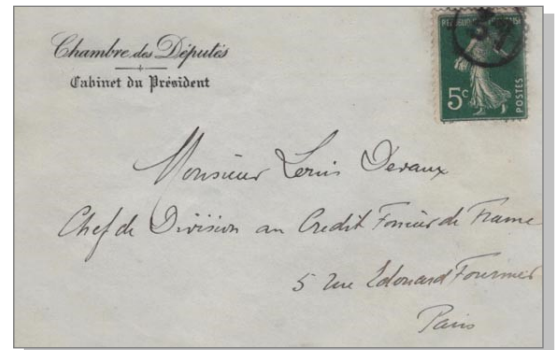 Chambre des Députés
Cabinet du Président
37
5c
POSTES
Monsieur Louis Devaux
Chef de Division au Credit Foncier de France
5 rue Edouard Fournier
Paris